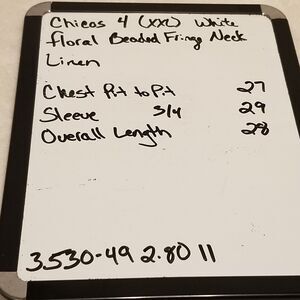 Chicos 4 (XXL) White
floral Beaded Fringe Neck
Linen
Chest Pit to Pit 27
Sleeve 3/4 29
Overall Length 28
3.530-49 2.80 11